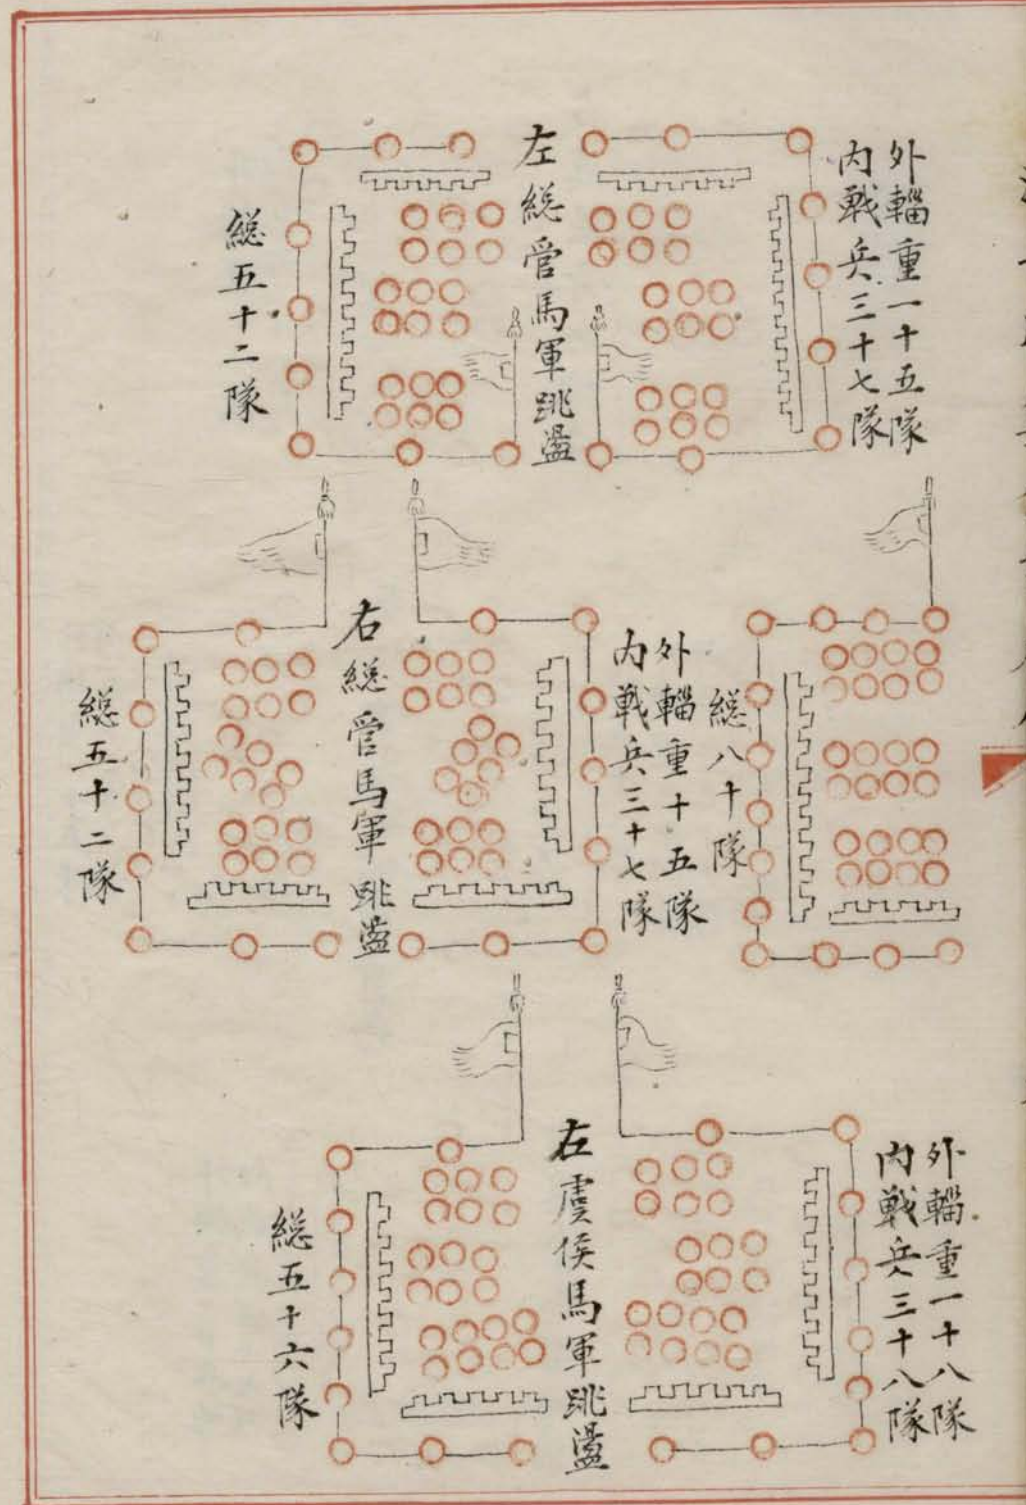 外輜重一十五隊
内戦兵三十七隊
左総管馬軍跳盪
総五十二隊
総八十隊
外輜重十五隊
内戦兵三十七隊
右総管馬軍跳盪
総五十二隊
外輜重一十八隊
内戦兵三十八隊
左虞侯馬軍跳盪
総五十六隊